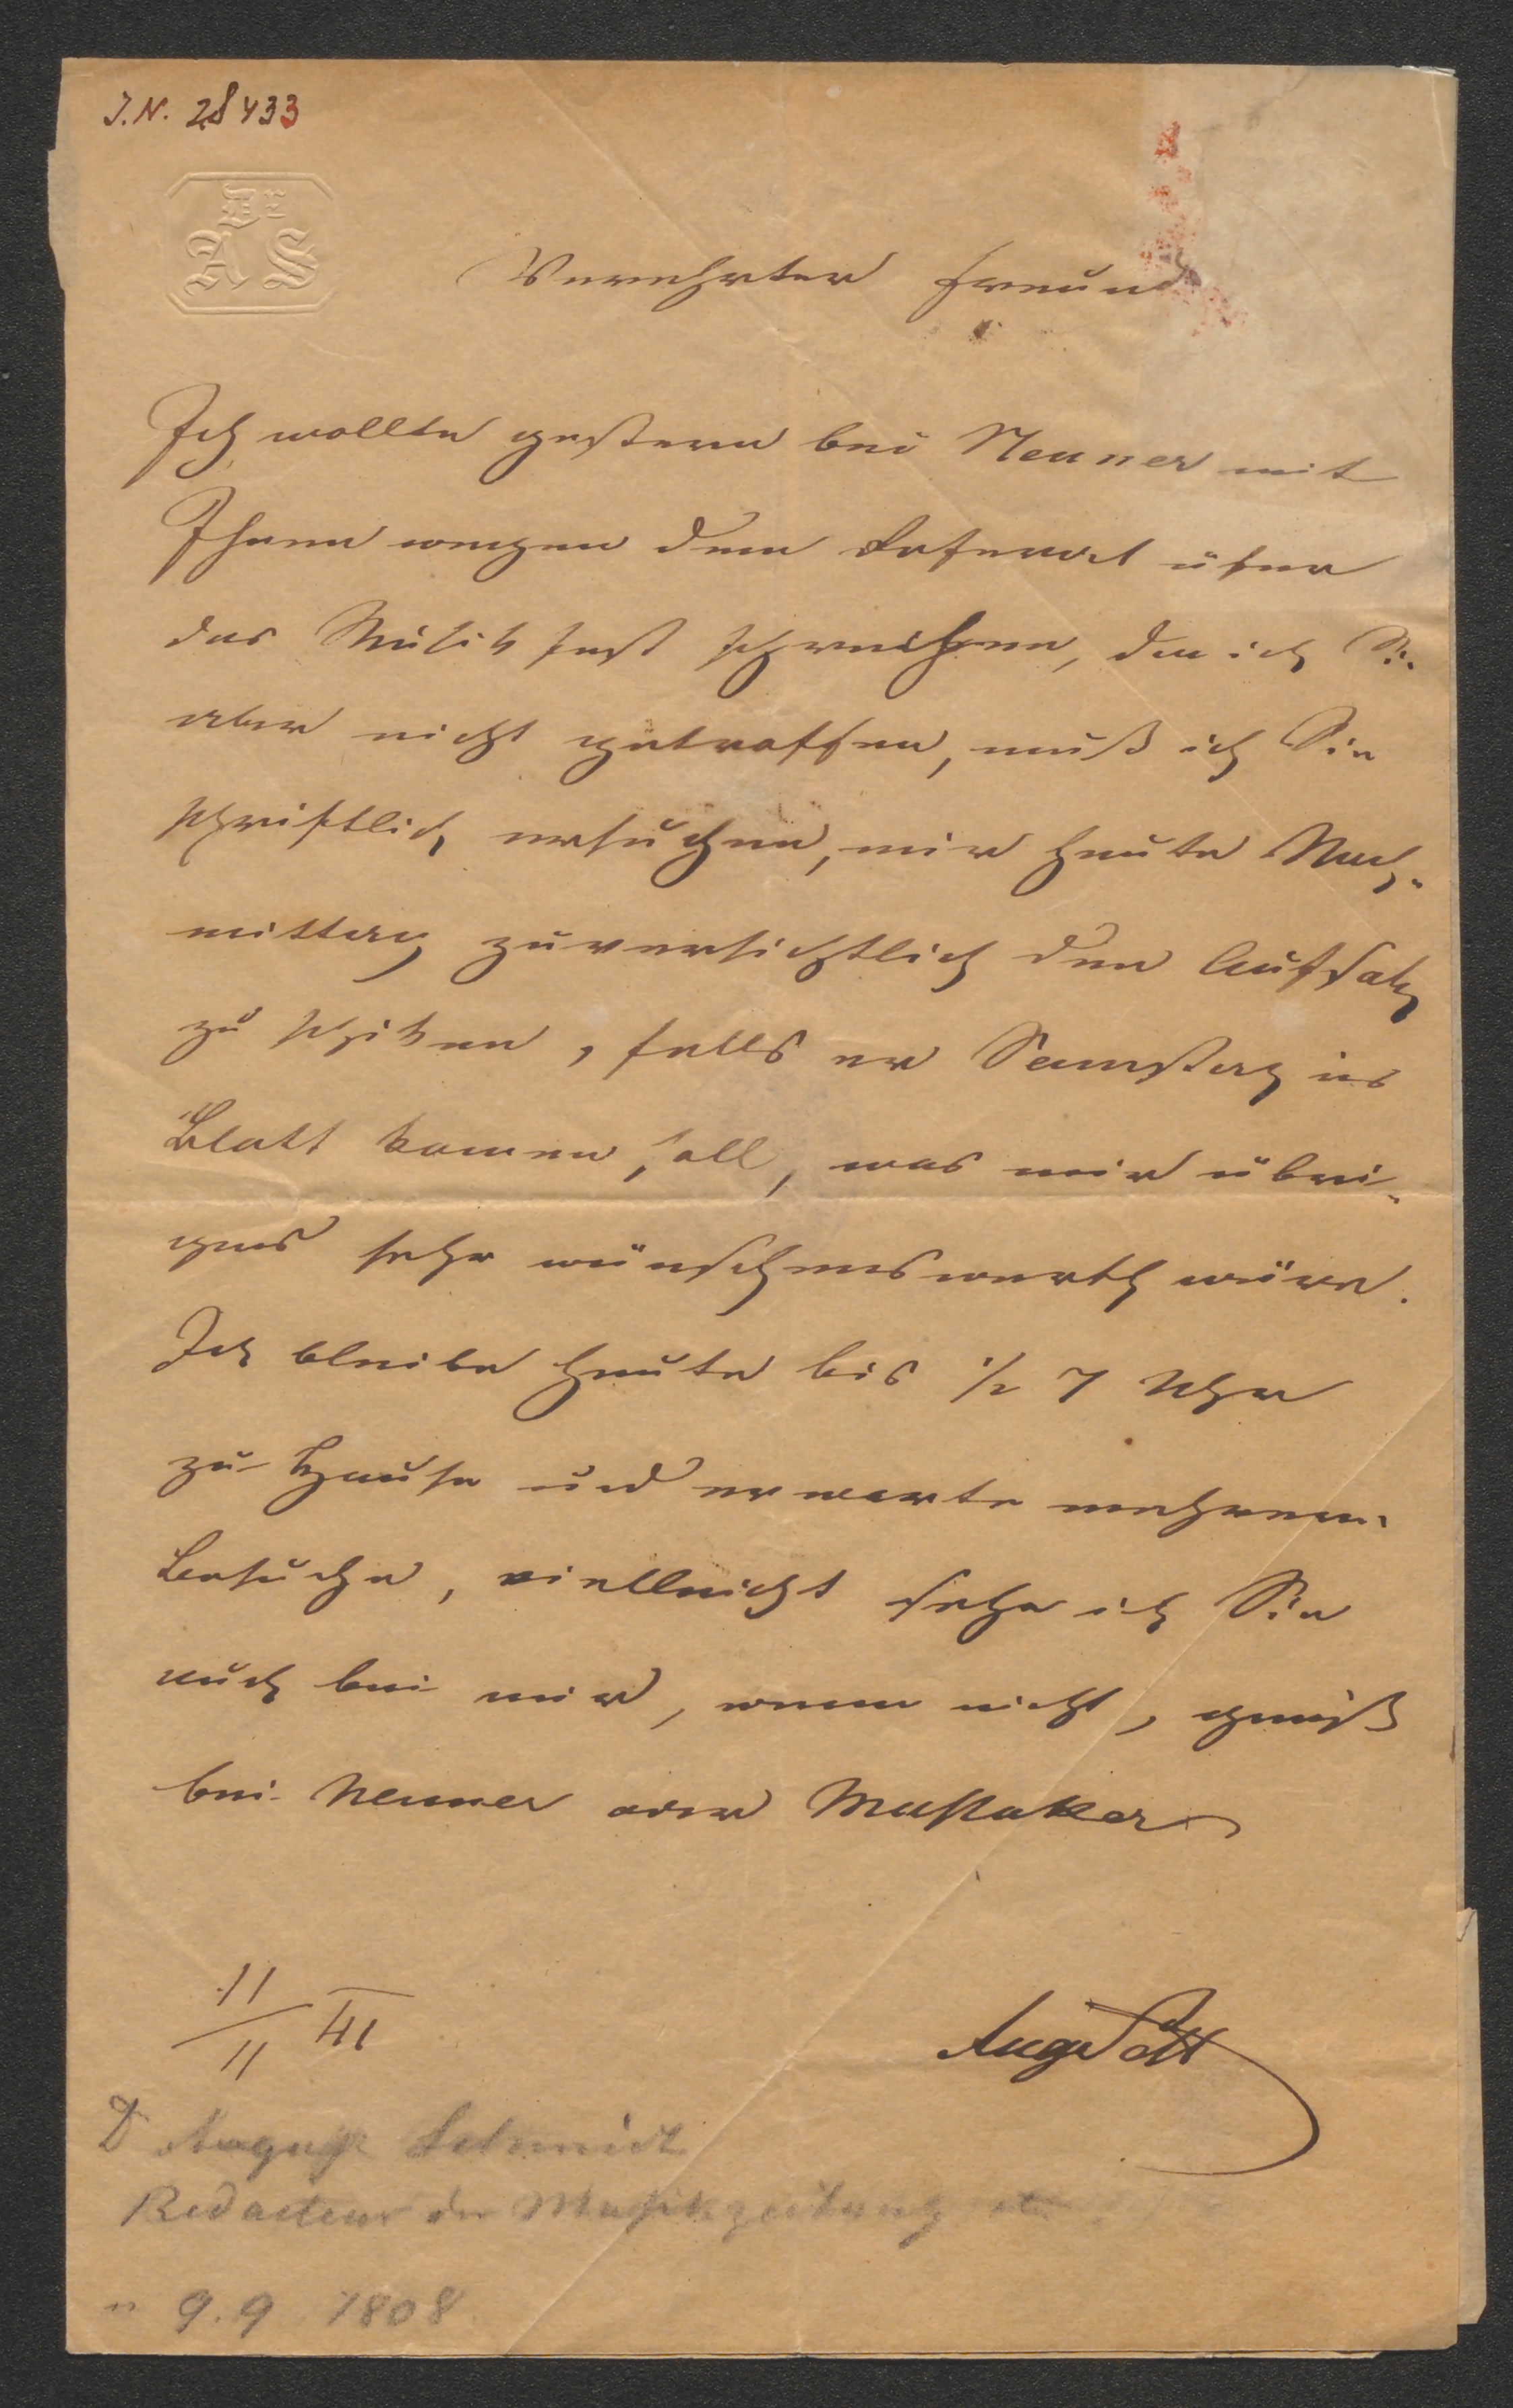 J.N. 28433
Dr
A S
Verehrter Freund
Ich wollte gestern bei Neuner mit
Ihnen wegen dem Referat über
das Musikfest sprechen, da ich Sie
aber nicht getroffen, muß ich Sie
schriftlich ersuchen, mir heute Nach-
mittag zuversichtlich den Aufsatz
zu schiken, falls er Samstag ins
Blatt komen soll, was mir übri-
gens sehr wünschenswerth wäre.
Ich bleibe heute bis 1/2 7 Uhr
zu Hause und erwarte mehrere
Besuche, vielleicht sehe ich Sie
auch bei mir, wenn nicht, gewiß
bei Neuner oder
11/11 41
Aug
D August Schmidt
Redacteur der Musikzeitung etc
n 9.9 1808